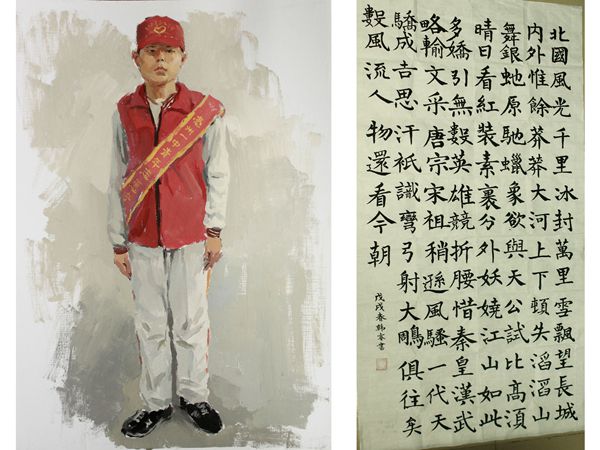 北國風光千里冰封萬里雪飄望長城
内外惟餘莽莽大河上下頓失滔滔山
舞銀虵原馳蠟象欲與天公試比高須
晴日看紅裝素裹分外妖嬈江山如此
多嬌引無數英雄競折腰惜秦皇漢武
略輸文采唐宗宋祖稍遜風騷一代天
驕成吉思汗衹識彎弓射大鵰俱往矣
數風流人物還看今朝
戊戌春韩書